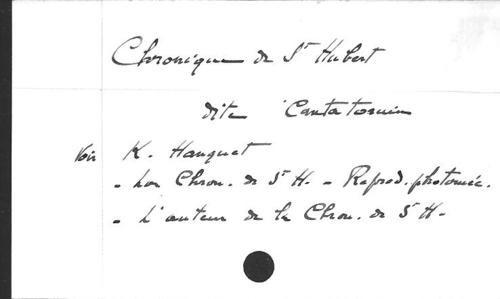 Chronique de St Hubert
dite Cantatorium
Voir K. Hanquet
- La Chron. de St H. - Reprod. photoméc.
- L'auteur de la Chron. de St H.